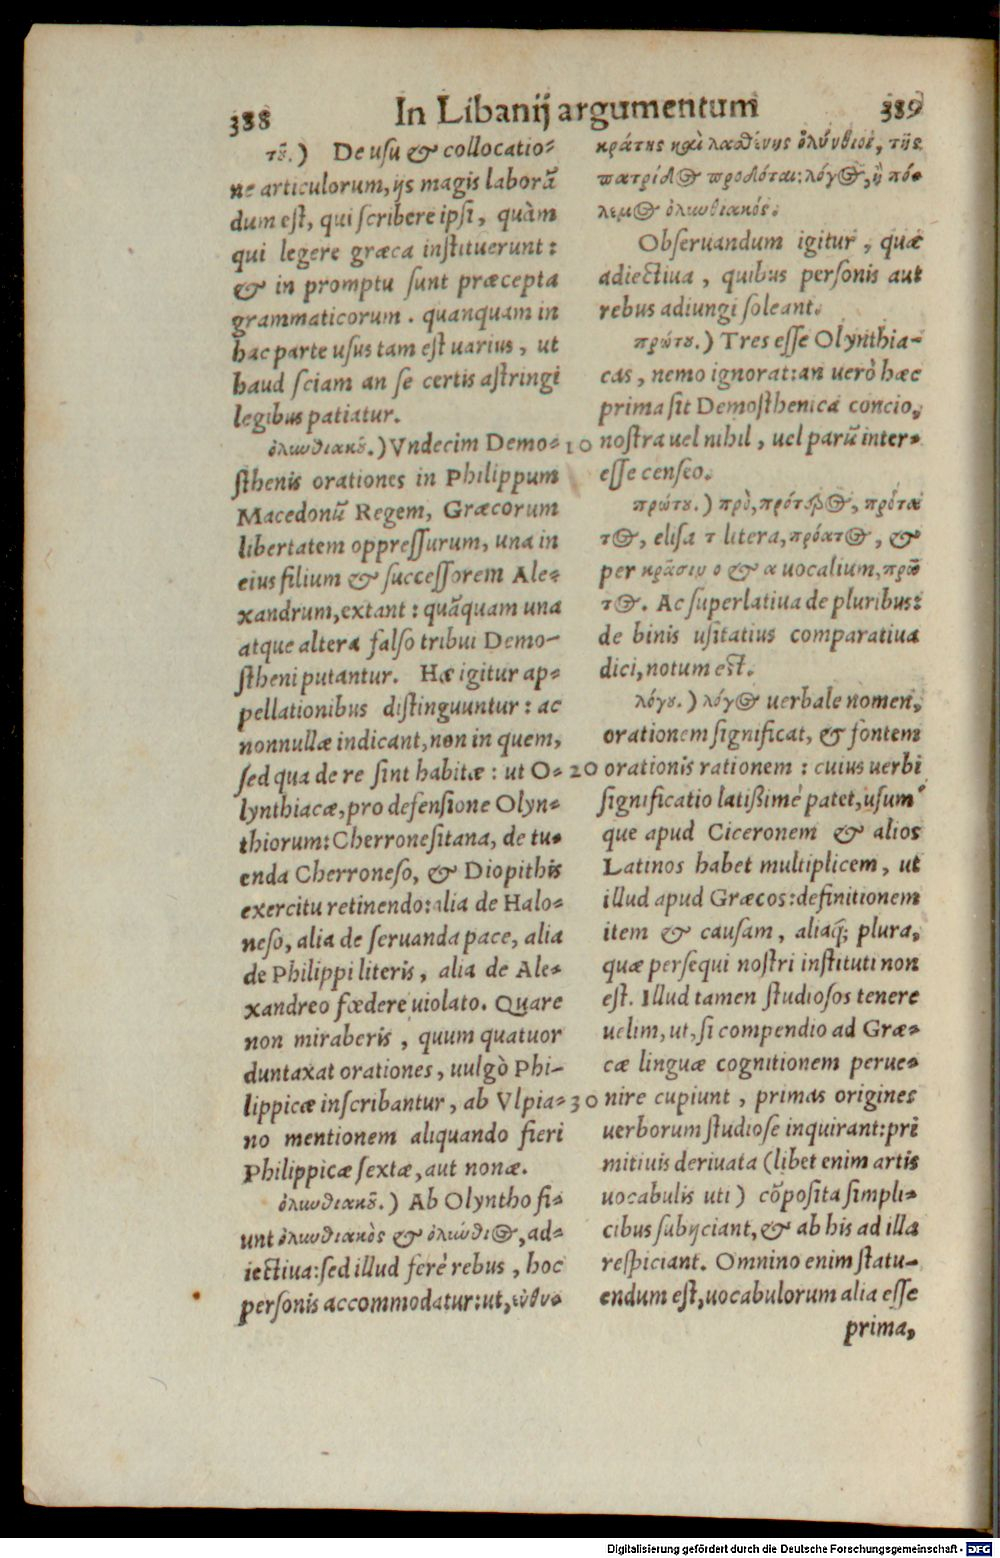 388 In Libanij argumentum 389
τοῦ.) De usu & collocatio-
ne articulorum, ijs magis laborā
dum est, qui scribere ipsi, quàm
qui legere græca instituerunt:
& in promptu sunt præcepta
grammaticorum. quanquam in
hac parte usus tam est uarius, ut
haud sciam an se certis astringi
legibus patiatur.
ὀλυνθιακοῦ.) Vndecim Demo-
sthenis orationes in Philippum
Macedonū Regem, Græcorum
libertatem oppressurum, una in
eius filium & successorem Ale-
xandrum, extant: quāquam una
atque altera falso tribui Demo-
stheni putantur. Hæ igitur ap-
pellationibus distinguuntur: ac
nonnullæ indicant, non in quem,
sed qua de re sint habitæ: ut O-
lynthiacæ, pro defensione Olyn-
thiorum: Cherronesitana, de tu-
enda Cherroneso, & Diopithis
exercitu retinendo: alia de Halo-
neso, alia de seruanda pace, alia
de Philippi literis, alia de Ale-
xandreo fœdere uiolato. Quare
non miraberis, quum quatuor
duntaxat orationes, uulgò Phi-
lippicæ inscribantur, ab Vlpia-
no mentionem aliquando fieri
Philippicæ sextæ, aut nonæ.
ὀλυνθιακοῦ.) Ab Olyntho fi-
unt ὀλυνθιακὸς & ὀλύνθιος, ad-
iectiua: sed illud ferè rebus, hoc
personis accommodatur: ut, εὐθυ-
10
20
30
κράτης καὶ λασθένης ὀλύνθιοι, τῆς
πατρίδος προδόται: λόγος, ἢ πό-
λεμος ὀλυνθιακός.
Obseruandum igitur, quæ
adiectiua, quibus personis aut
rebus adiungi soleant.
πρώτου.) Tres esse Olynthia-
cas, nemo ignorat: an uerò hæc
prima sit Demosthenica concio,
nostra uel nihil, uel parū inter-
esse censeo.
πρώτου.) πρὸ, πρότερος, πρότα
τος, elisa τ litera, πρόατος, &
per κρᾶσιν ο & α uocalium, πρῶ
τος. Ac superlatiua de pluribus:
de binis usitatius comparatiua
dici, notum est.
λόγου.) λόγος uerbale nomen,
orationem significat, & fontem
orationis rationem: cuius uerbi
significatio latißimè patet, usum
que apud Ciceronem & alios
Latinos habet multiplicem, ut
illud apud Græcos: definitionem
item & causam, aliaq; plura,
quæ persequi nostri instituti non
est. Illud tamen studiosos tenere
uelim, ut, si compendio ad Græ-
cæ linguæ cognitionem perue-
nire cupiunt, primas origines
uerborum studiose inquirant: pri
mitiuis deriuata (libet enim artis
uocabulis uti) cōposita simpli-
cibus subijciant, & ab his ad illa
respiciant. Omnino enim statu-
endum est, uocabulorum alia esse
prima,
Digitalisierung gefördert durch die Deutsche Forschungsgemeinschaft - DFG